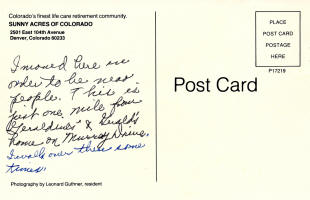 Colorado's finest life care retirement community.
SUNNY ACRES OF COLORADO
2501 East 104th Avenue
Denver, Colorado 80233
I moved here in
order to be near
people. This is
just one mile from
Geraldine's & Gerald's
home on Murray Drive.
I walk over there some
times.
Photography by Leonard Guthner, resident
Post Card
PLACE
POST CARD
POSTAGE
HERE
P17219